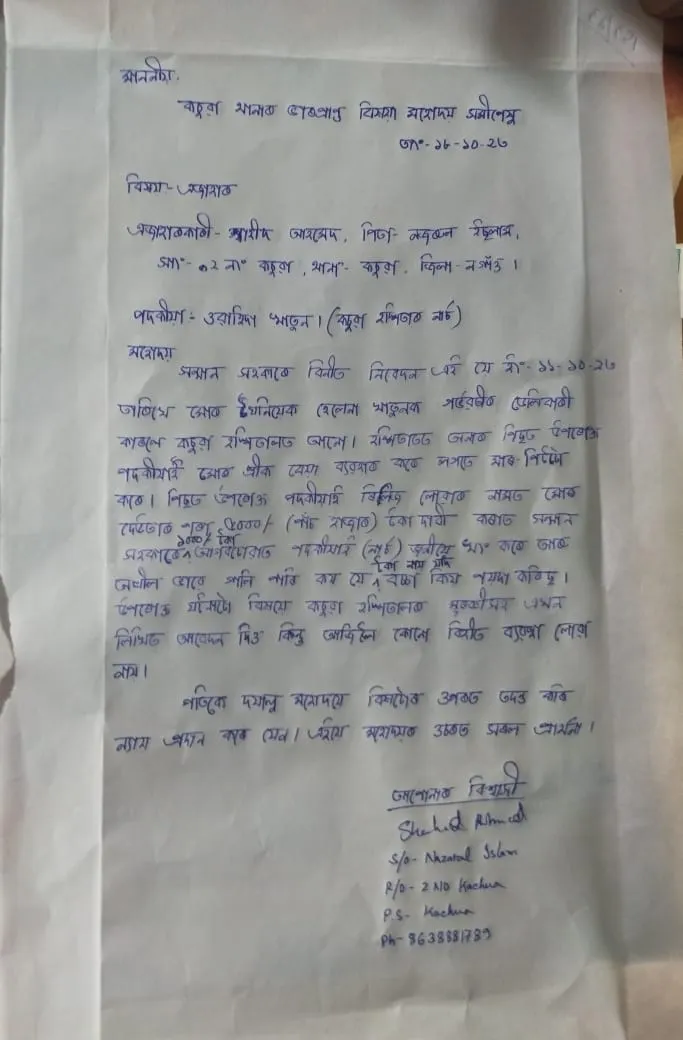 মাননীয়,
কচুৱা থানাৰ ভাৰপ্ৰাপ্ত বিষয়া মহোদয় সমীপেষু
তাং- ১৮-১০-২৩
বিষয়- এজাহাৰ
এজাহাৰকাৰী- শ্বাহীদ আহমেদ, পিতা- নজৰুল ইছলাম,
সাং- ০২ নং কচুৱা, থানা- কচুৱা, জিলা- নগাঁও।
পদকীয়া- ওৱাহিদা খাতুন। (কচুৱা হস্পিতালৰ নাৰ্চ)
মহোদয়
সন্মান সহকাৰে বিনীত নিবেদন এই যে ইং- ১১-১০-২৩
তাৰিখে মোৰ হেলেনা খাতুনক গৰ্ভৱতীৰ ডেলিভাৰী
কাৰণে কচুৱা হস্পিতালত আনো। হস্পিতালত অনাৰ পিছত উপৰোক্ত
পদকীয়াই মোৰ বেয়া ব্যৱহাৰ কৰে লগতে
কৰে। পিছত উপৰোক্ত পদকীয়াই বিভিন্ন লোকৰ নামত মোৰ
পৰা ৫০০০/- (পাঁচ হাজাৰ) টকা দাবী কৰাত সন্মান
১০০০/- টকা
সহকাৰে পদকীয়াই (নাৰ্চ) খং কৰে আৰু
অশ্লীল ভাবে গালি পাৰি কয় যে টকা নাই যদি বাচ্চা কিয় পয়দা কৰিছ।
উপৰোক্ত ঘটনাটো বিষয়ে কচুৱা হস্পিতালৰ এখন
লিখিত আবেদন দিওঁ কিন্তু আজিলৈ কোনো বিহীত ব্যৱস্থা লোৱা
নাই।
গতিকে দয়ালু মহোদয়ে বিষয়টোৰ ওপৰত তদন্ত কৰি
ন্যায় প্ৰদান কৰে যেন। এইয়ে মহোদয়ৰ ওচৰত সকল প্ৰাৰ্থনা।
আপোনাৰ বিশ্বাসী
Shahid Ahmed
S/o- Nazarul Islam
R/o- 2 NO Kachua
P.S- Kachua
Ph- 8638881789